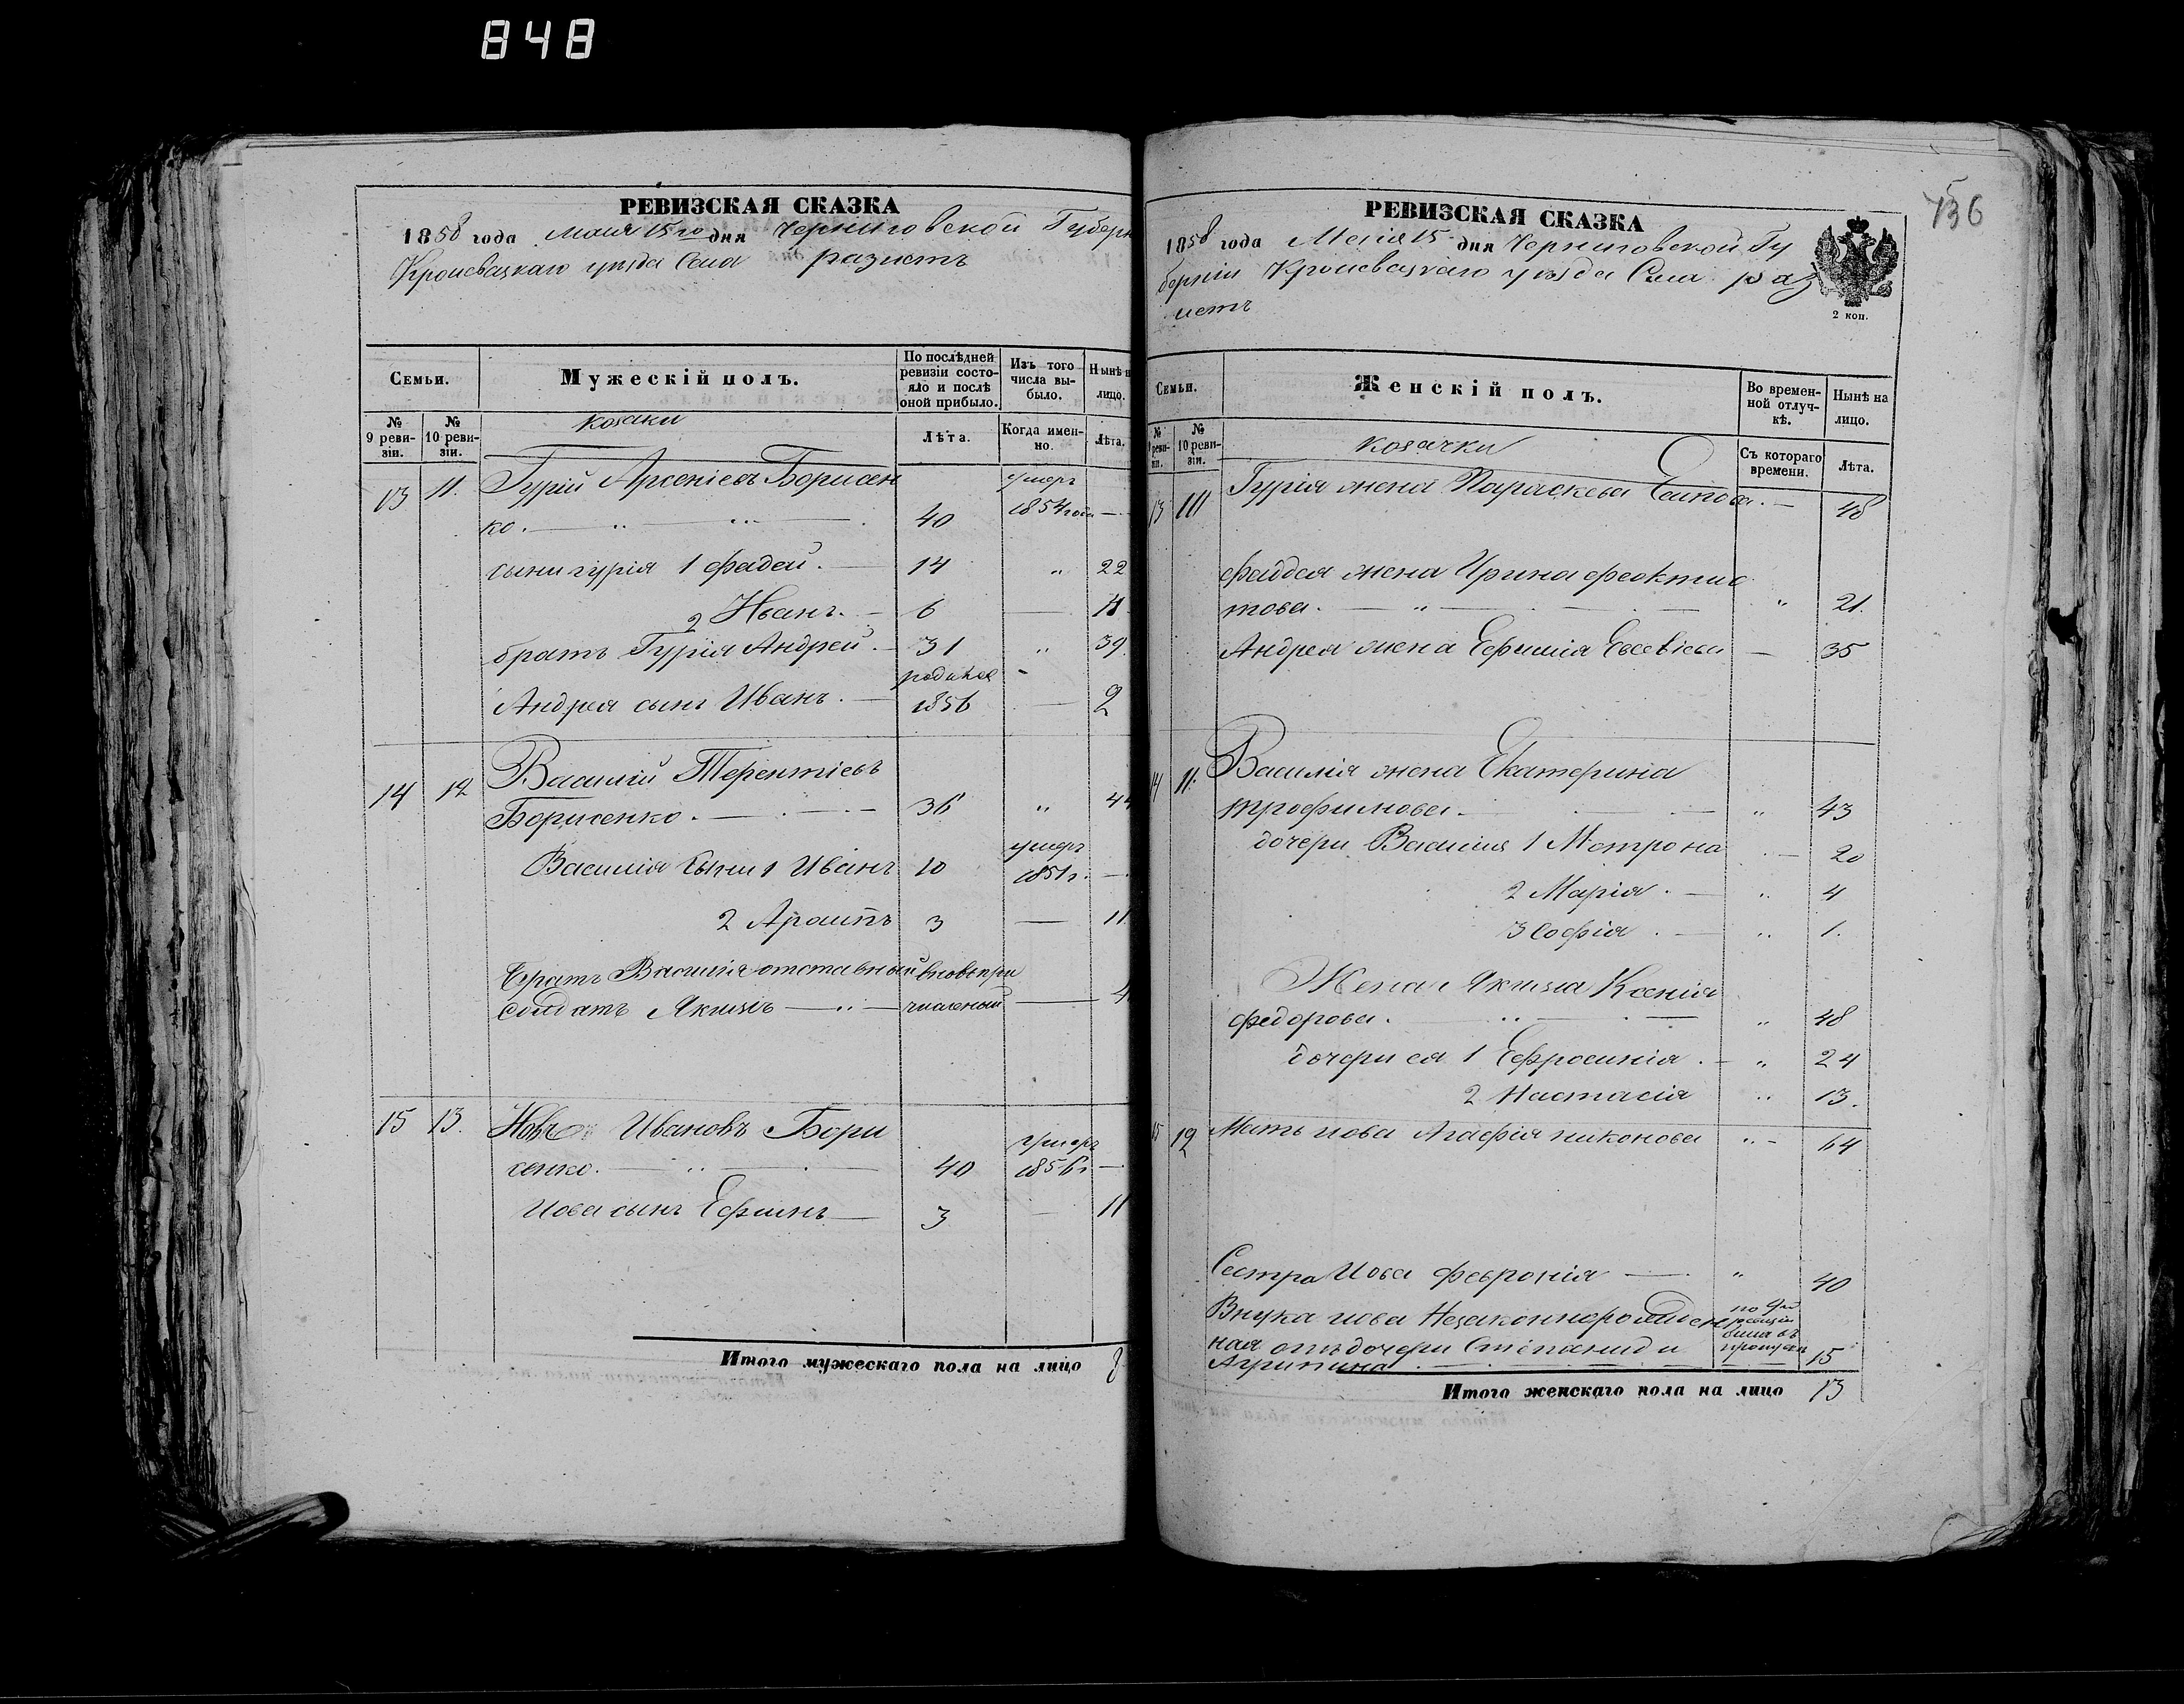 848
РЕВИЗСКАЯ СКАЗКА
1858 года мая 15го дня Черниговской Губерн
Кролевецкаго уезда Села разлетъ
Семьи.
Мужескій полъ.
По послѣдней ревизіи состояло и послѣ оной прибыло.
Изъ того числа выбыло.
Нынѣ н лицо.
№ 9 ревизіи.
№ 10 ревизіи.
козаки
Лѣта.
Когда именно.
Лѣта.
13 11. Гурій Арсеніевъ Борисен умеръ
ко. 40 1854 года —
сыни гурія 1 фадей. 14 „ 22
2 Иванъ. 6 — 11
братъ Гурія Андрей. 31 „ 39.
родился
Андрея сынъ Иванъ. 1856 — 2
14 12 Василій Терентіевъ
Борисенко. 36 „ 44
умеръ
Василія сыни 1 Иванъ 10 1851 г. —
2 Архипъ 3 — 11.
братъ Василія отставный вновь при
солдатъ Якимъ — „ — численый — 4
15 13. Іовъ Ивановъ Бори умеръ
сенко. 40 1856 г —
Иова сынъ Ефимъ 3 — 11
Итого мужескаго пола на лицо 8
736
РЕВИЗСКАЯ СКАЗКА
1858 года Маія 15 дня Черниговской Гу
берніи Кролевецкаго уезда Села раз
летъ
2 коп.
Семьи.
Женскій полъ.
Во временной отлучкѣ.
Нынѣ на лицо.
№ 9 ревизіи.
№ 10 ревизіи.
козачки
Съ котораго времени.
Лѣта.
13 Гурія жена Параскева — 48
Фаддея жена Ирина феоктис
това. „ 21.
Андрея жена Ефимія Евсевіева — 35
14 11. Василія жена Екатерина
трофимова. „ 43
дочери Василия 1 Мотрона — 20
2 Марія. — „ 4
3 Софія. — „ 1.
Жена Якима Ксенія
федорова. „ 48
дочери ея 1 Ефросинія. „ 24
2 Настасія „ 13.
15 12 Мать иова Агафія никонова „ - 64
Сестра Иова феврокія — „ 40
Внука иова Незаконнорожден по 9й ревизіи
ная отъ дочери Степаниди была въ пропуске
Агрипина 15
Итого женскаго пола на лицо 13